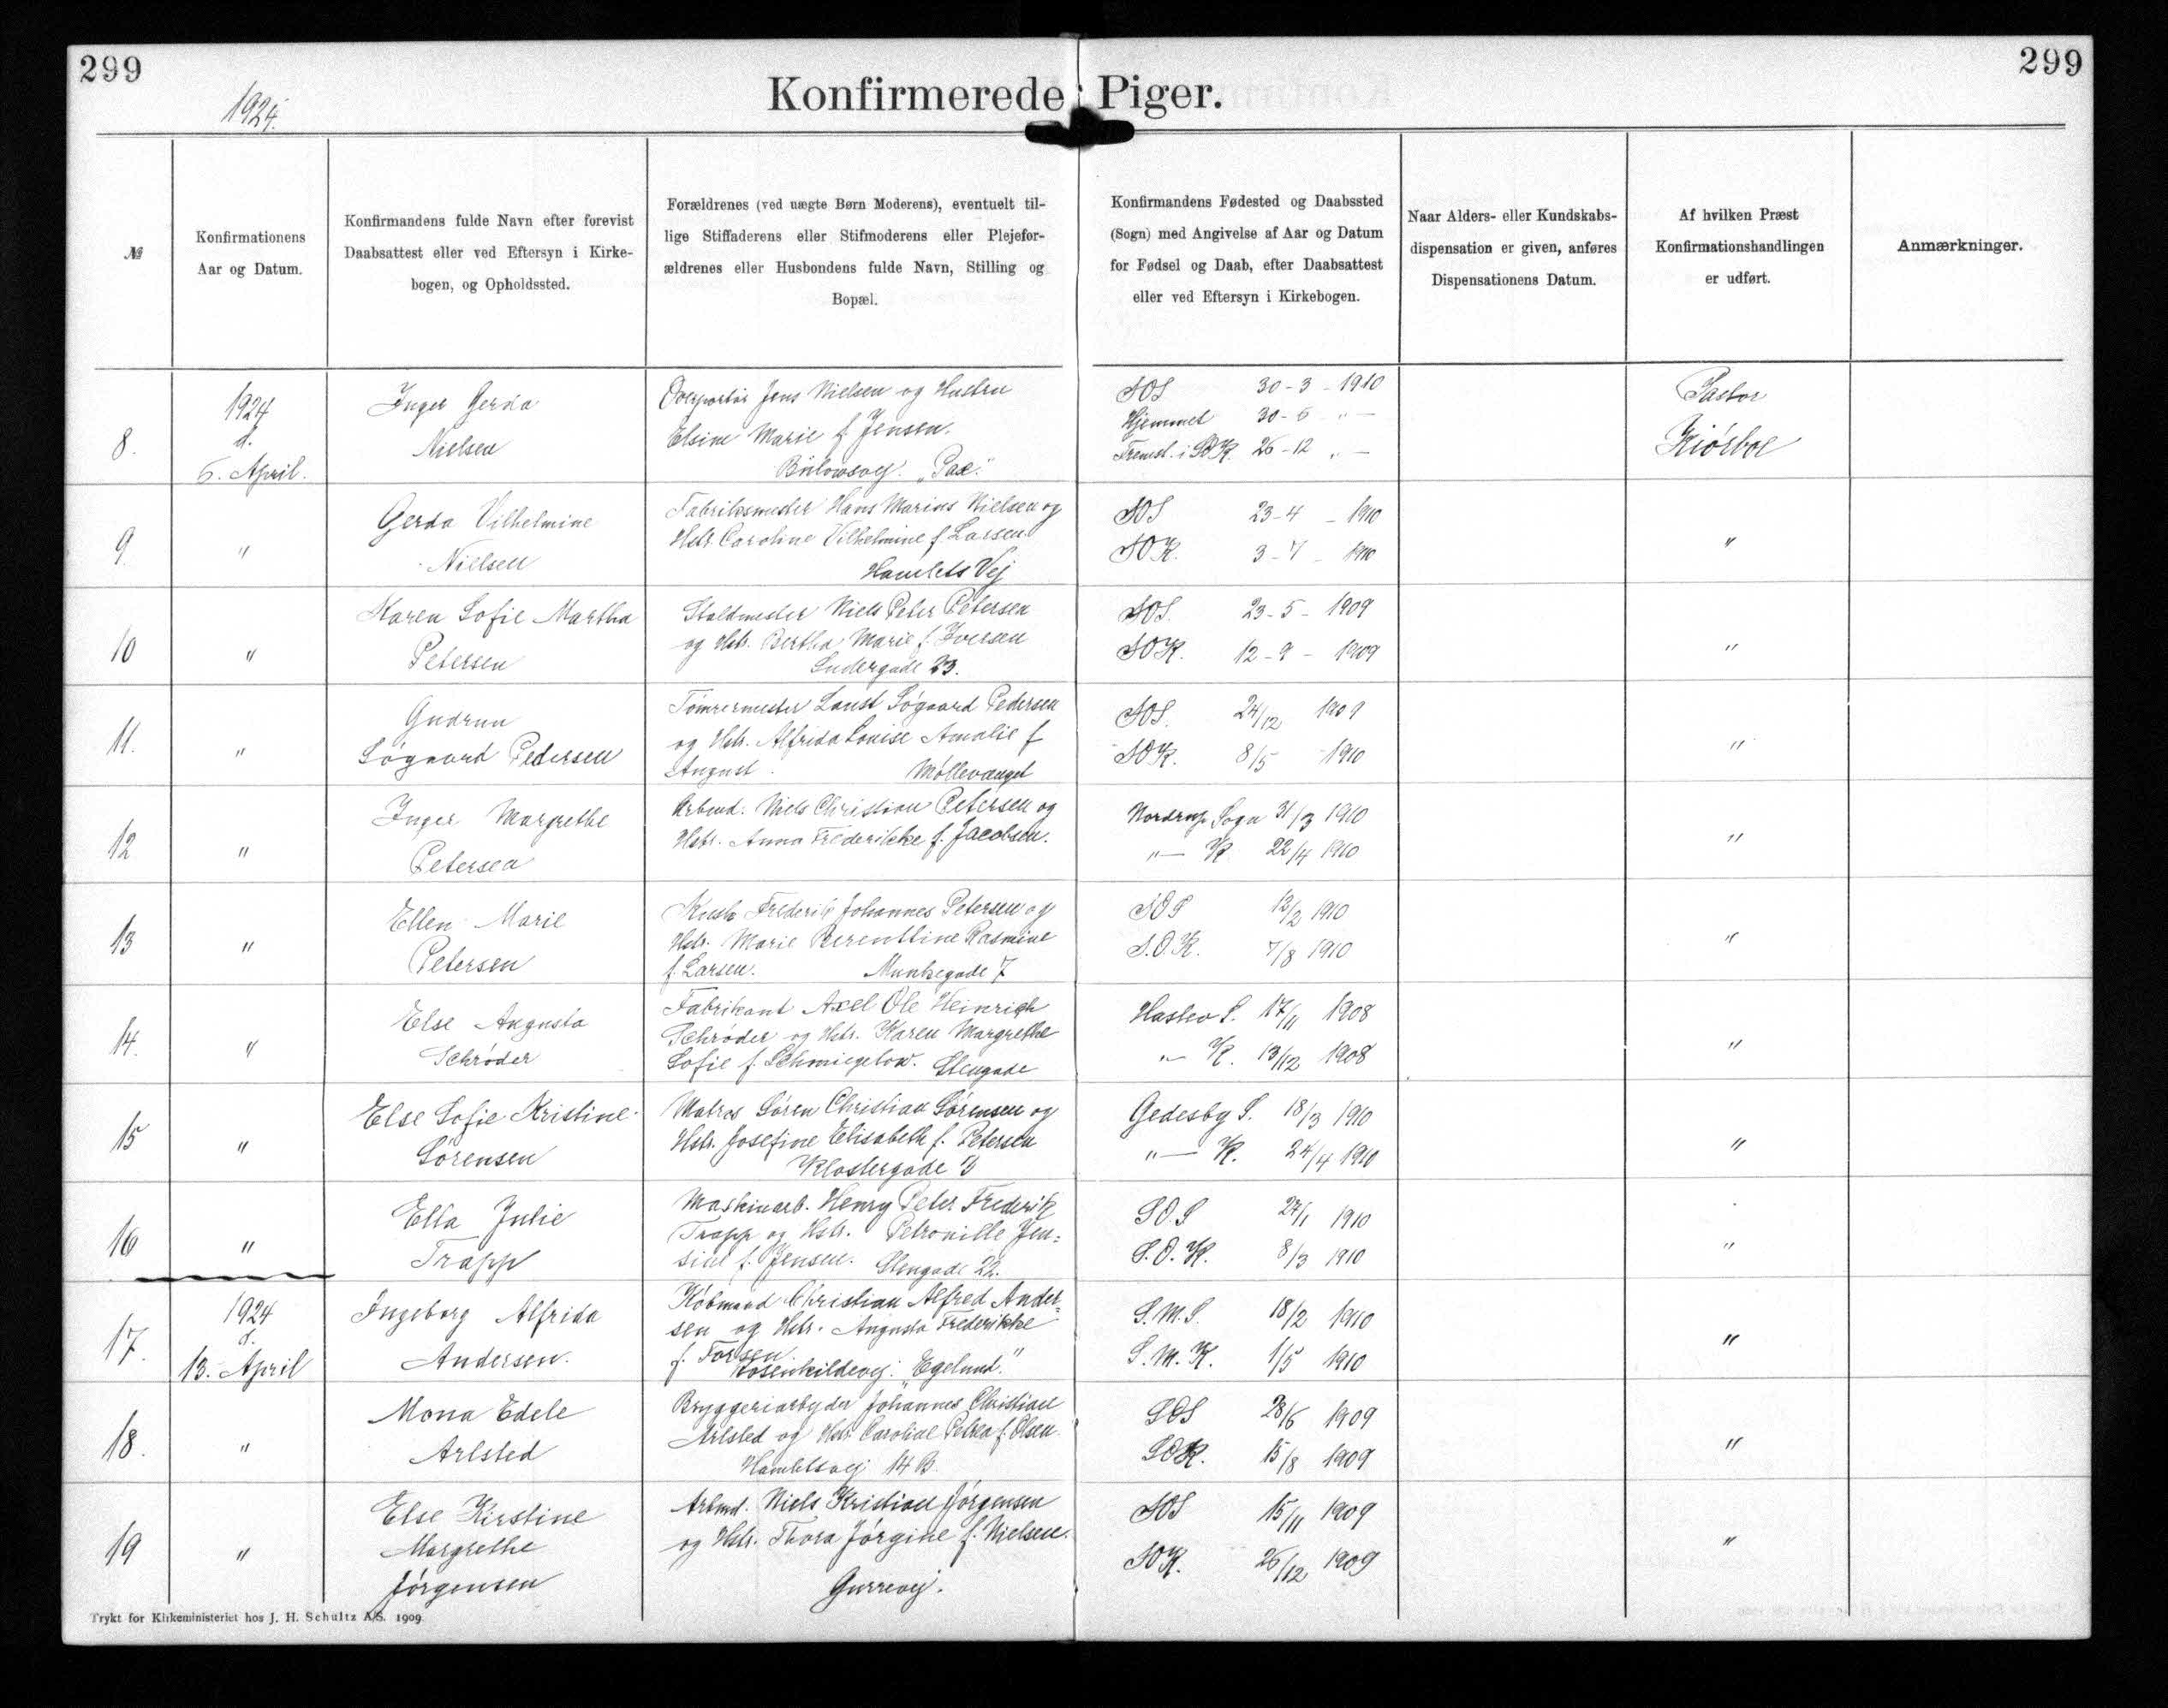 299
299
1924.
Konfirmerede Piger.
№
Konfirmationens
Aar og Datum.
Konfirmandens fulde Navn efter forevist
Daabsattest eller ved Eftersyn i Kirke-
bogen, og Opholdssted.
Forældrenes (ved uægte Børn Moderens), eventuelt til-
lige Stiffaderens eller Stifmoderens eller Plejefor-
ældrenes eller Husbondens fulde Navn, Stilling og
Bopæl.
Konfirmandens Fødested og Daabssted
(Sogn) med Angivelse af Aar og Datum
for Fødsel og Daab, efter Daabsattest
eller ved Eftersyn i Kirkebogen.
Naar Alders- eller Kundskabs-
dispensation er given, anføres
Dispensationens Datum.
Af hvilken Præst
Konfirmationshandlingen
er udført.
Anmærkninger.
8.
1924
d.
6. April.
Inger Gerda
Nielsen
Overportør Jens Nielsen og Hustru
Elsine Marie f. Jensen.
Bülowsvej. „Pax."
SOS 30-3-1910
Hjemmet 30-5 "—
Fremst. i SOK. 26-12 "—
Pastor
Kiørboe
9
"
Gerda Vilhelmine
Nielsen
Fabriksmester Hans Marius Nielsen og
Hstr. Caroline Vilhelmine f Larsen
Hamlets Vej
SOS 23-4-1910
SOK. 3-7-1910
"
10
"
Karen Sofie Martha
Petersen
Staldmester Niels Peter Petersen
og Hstr. Bertha Marie f. Iversen
Sudergade 23.
SOS. 23-5-1909
SOK. 12-9-1909
"
11.
"
Gudrun
Søgaard Pedersen
Tømrermester Laust Søgaard Pedersen
og Hstr. Alfrida Louise Amalie f
August. Møllevænget
SOS. 24/12 1909
SOK. 8/5 1910
"
12
"
Inger Margrethe
Petersen
Arbmd. Niels Christian Petersen og
Hstr. Anna Frederikke f. Jacobsen.
Nordrup Sogn 31/3 1910
"— K. 22/4 1910
"
13
"
Ellen Marie
Petersen
Kusk Frederik Johannes Petersen og
Hstr. Marie Berentine Rasmine
f. Larsen. Munkegade 7
SOS 12/2 1910
S.O.K. 7/8 1910
"
14.
"
Else Augusta
Schrøder
Fabrikant Axel Ole Heinrich
Schrøder og Hstr. Karen Margrethe
Sofie f. Schmiegelow. Stengade
Haslev S. 17/11 1908
"— K. 13/12 1908
"
15
"
Else Sofie Kristine
Sørensen
Matros Søren Christian Sørensen og
Hstr. Josefine Elisabeth f. Petersen
Klostergade
Gedesby S. 18/3 1910
"— K. 24/4 1910
"
16
"
Ella Julie
Trapp
Maskinarb. Henry Peter Frederik
Trapp og Hstr. Petronille Jen-
sine f. Jensen. Stengade 22.
SO.S 27/1 1910
S.O.K. 8/3 1910
"
17.
1924
d.
13. April
Ingeborg Alfrida
Andersen.
Købmand Christian Alfred Ander-
sen og Hstr. Augusta Frederikke
f. Forsen
Rosenkildevej. „Egelund."
S.M.S. 18/2 1910
S.M.K. 1/5 1910
"
18.
"
Mona Edele
Arlsted
Bryggeriarbejder Johannes Christian
Arlsted og Hstr. Caroline Petra f. Olsen
Hamletsvej 14 B.
SOS 28/6 1909
SOK. 15/8 1909
"
19
"
Else Kirstine
Margrethe
Jørgensen
Arbmd. Niels Kristian Jørgensen
og Hstr. Thora Jørgine f. Nielsen.
Gurrevej.
SOS 15/11 1909
SOK. 26/12 1909
"
Trykt for Kirkeministeriet hos J. H. Schultz A/S. 1909